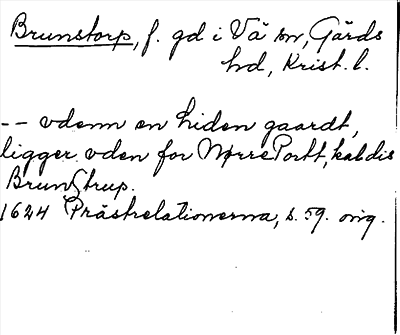 Brunstorp, f. gd i Vä sn, Gärds
hd, Krist. l.
-- vdenn en liden gaardt,
ligger vden for NørrePortt, kaldis
BrunStrup.
1624 Prästrelationerna, s. 59. orig.